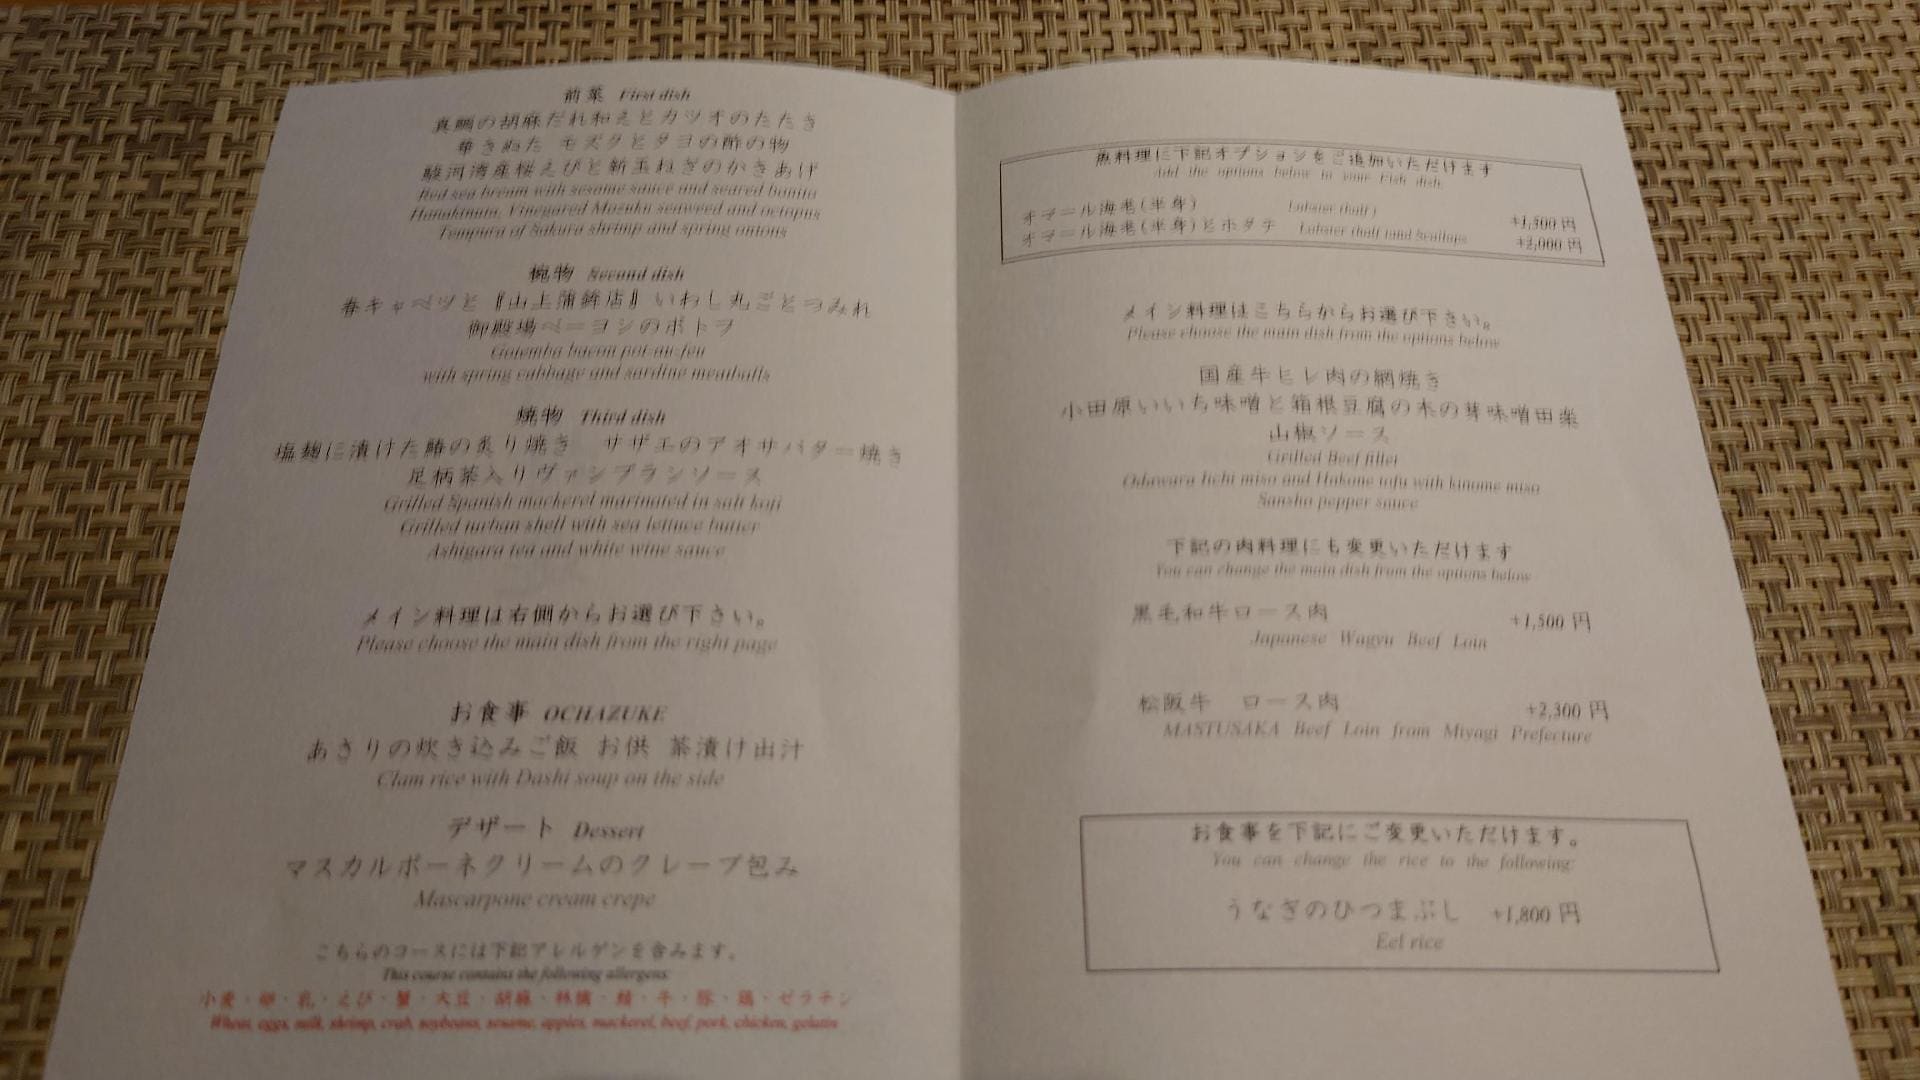 前菜 First dish
真鯛の胡麻だれ和えとカツオのたたき
華きぬた モズクとタコの酢の物
駿河湾産桜えびと新玉ねぎのかきあげ
Red sea bream with sesame sauce and seared bonito
Hanakinuta, Vinegared Mozuku seaweed and octopus
Tempura of Sakura shrimp and spring onions
椀物 Second dish
春キャベツと『山上蒲鉾店』いわし丸ごとつみれ
御殿場ベーコンのポトフ
Gotemba bacon pot-au-feu
with spring cabbage and sardine meatballs
焼物 Third dish
塩麹に漬けた鰆の炙り焼き サザエのアオサバター焼き
足柄茶入りヴァンブランソース
Grilled Spanish mackerel marinated in salt koji
Grilled turban shell with sea lettuce butter
Ashigara tea and white wine sauce
メイン料理は右側からお選び下さい。
Please choose the main dish from the right page
お食事 OCHAZUKE
あさりの炊き込みご飯 お供 茶漬け出汁
Clam rice with Dashi soup on the side
デザート Dessert
マスカルポーネクリームのクレープ包み
Mascarpone cream crepe
こちらのコースには下記アレルゲンを含みます。
This course contains the following allergens:
小麦・卵・乳・えび・蟹・大豆・胡麻・林檎・鯖・牛・豚・鶏・ゼラチン
Wheat, eggs, milk, shrimp, crab, soybeans, sesame, apples, mackerel, beef, pork, chicken, gelatin
魚料理に下記オプションをご追加いただけます
Add the options below to your Fish dish.
オマール海老(半身) Lobster (half) +1,500 円
オマール海老(半身)とホタテ Lobster (half) and Scallops +2,000 円
メイン料理はこちらからお選び下さい。
Please choose the main dish from the options below
国産牛ヒレ肉の網焼き
小田原いいち味噌と箱根豆腐の木の芽味噌田楽
山椒ソース
Grilled Beef fillet
Odawara Iichi miso and Hakone tofu with kinome miso
Sansho pepper sauce
下記の肉料理にも変更いただけます
You can change the main dish from the options below
黒毛和牛ロース肉 +1,500 円
Japanese Wagyu Beef Loin
松阪牛 ロース肉 +2,300 円
MASTUSAKA Beef Loin from Miyagi Prefecture
お食事を下記にご変更いただけます。
You can change the rice to the following:
うなぎのひつまぶし +1,800 円
Eel rice